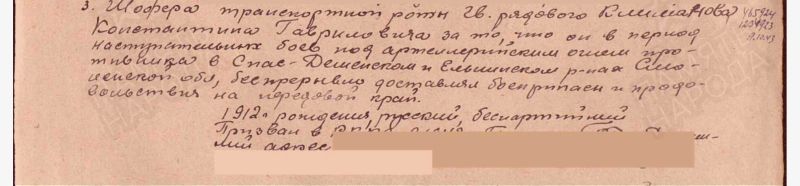 3. Шофера транспортной роты гв. рядового Климанова
Константина Гавриловича за то, что он в период
наступательных боев под артиллерийским огнем про-
тивника в Спас-Деменском и Ельнинском р-нах Смо-
ленской обл, беспрерывно доставлял боеприпасы и продо-
вольствия на передовой край.
1912г рождения, русский, беспартийный
Призван в
ний адрес